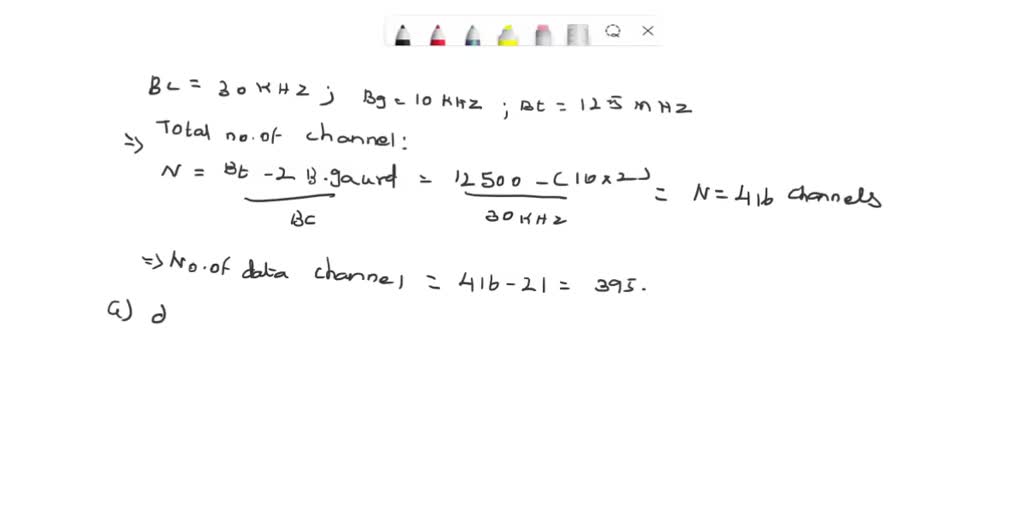 Bc = 30 KHZ ; Bg = 10 KHZ ; Bt = 125 MHZ
⇒ Total no. of channel:
N = Bt - 2 B.gaurd / Bc = 12500 - (10 x 2) / 30 KHZ = N = 416 channels
⇒ No. of data channel = 416 - 21 = 395.
a) d